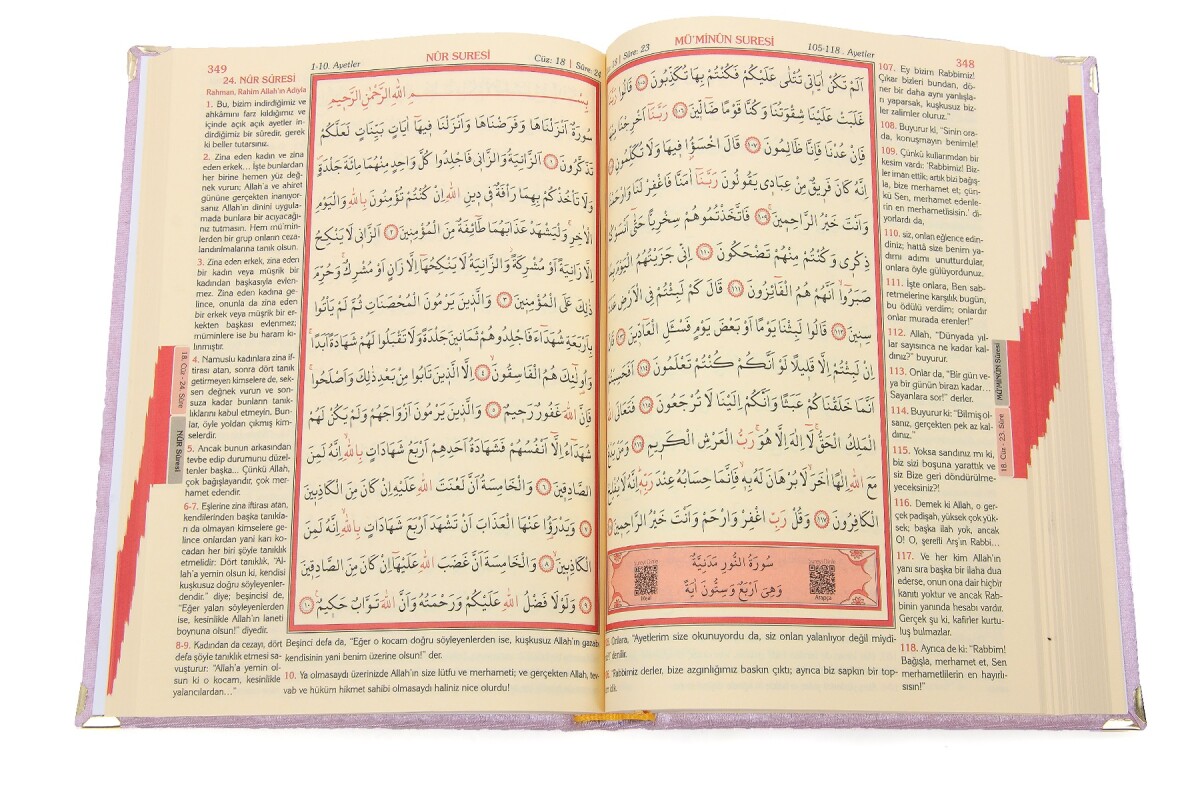 105-118. Ayetler
MÜ'MİNÛN SURESİ
Sûre: 23
348
اَلَمْ تَكُنْ اٰيَاتٖي تُتْلٰى عَلَيْكُمْ فَكُنْتُمْ بِهَا تُكَذِّبُونَ ﴿١٠٥﴾ قَالُوا
غَلَبَتْ عَلَيْنَا شِقْوَتُنَا وَكُنَّا قَوْمًا ضَٓالّٖينَ ﴿١٠٦﴾ رَبَّنَٓا اَخْرِجْنَا
فَاِنْ عُدْنَا فَاِنَّا ظَالِمُونَ ﴿١٠٧﴾ قَالَ اخْسَؤُ۫ا فٖيهَا وَلَا تُكَلِّمُونِ
اِنَّهُ كَانَ فَرٖيقٌ مِنْ عِبَادٖي يَقُولُونَ رَبَّنَٓا اٰمَنَّا فَاغْفِرْ لَنَا
وَاَنْتَ خَيْرُ الرَّاحِمٖينَ ﴿١٠٩﴾ فَاتَّخَذْتُمُوهُمْ سِخْرِيًّا حَتّٰٓى
ذِكْرٖي وَكُنْتُمْ مِنْهُمْ تَضْحَكُونَ ﴿١١٠﴾ اِنّٖي جَزَيْتُهُمُ الْيَوْمَ
صَبَرُٓوا اَنَّهُمْ هُمُ الْفَٓائِزُونَ ﴿١١١﴾ قَالَ كَمْ لَبِثْتُمْ فِي الْاَرْضِ
سِنٖينَ ﴿١١٢﴾ قَالُوا لَبِثْنَا يَوْمًا اَوْ بَعْضَ يَوْمٍ فَسْـَٔلِ الْعَٓادّٖينَ ﴿١١٣﴾
اِنْ لَبِثْتُمْ اِلَّا قَلٖيلًا لَوْ اَنَّكُمْ كُنْتُمْ تَعْلَمُونَ ﴿١١٤﴾
اَنَّمَا خَلَقْنَاكُمْ عَبَثًا وَاَنَّكُمْ اِلَيْنَا لَا تُرْجَعُونَ ﴿١١٥﴾ فَتَعَالَى
الْمَلِكُ الْحَقُّ لَٓا اِلٰهَ اِلَّا هُوَ رَبُّ الْعَرْشِ الْكَرٖيمِ ﴿١١٦﴾
مَعَ اللّٰهِ اِلٰهًا اٰخَرَ لَا بُرْهَانَ لَهُ بِهٖ فَاِنَّمَا حِسَابُهُ عِنْدَ رَبِّهٖ اِنَّهُ لَا
الْكَافِرُونَ ﴿١١٧﴾ وَقُلْ رَبِّ اغْفِرْ وَارْحَمْ وَاَنْتَ خَيْرُ الرَّاحِمٖينَ
سُورَةُ النُّورِ مَدَنِيَّةٌ
وَهِيَ اَرْبَعٌ وَسِتُّونَ اٰيَةً
Meal
Arapça
Onlara, "Ayetlerim size okunuyordu da, siz onları yalanlıyor değil miydi-
denilir.
"Rabbimiz derler, bize azgınlığımız baskın çıktı; ayrıca biz sapkın bir top-
idik.
107. Ey bizim Rabbimiz!
Çıkar bizleri bundan, dö-
ner bir daha aynı yanlışla-
rı yaparsak, kuşkusuz biz-
ler zalimler oluruz."
108. Buyurur ki, "Sinin ora-
da, konuşmayın benimle!
109. Çünkü kullarımdan bir
kesim vardı; 'Rabbimiz! Biz-
ler iman ettik; artık bizi bağış-
la, bize merhamet et; çün-
kü Sen, merhamet edenle-
rin en merhametlisisin.' di-
yorlardı da,
110. siz, onları eğlence edin-
diniz; hattâ size benim ya-
dımı adımı unutturdular,
onlara öyle gülüyordunuz.
111. İşte onlara, Ben sab-
retmelerine karşılık bugün,
bu ödülü verdim; onlardır
onlar murada erenler!"
112. Allah, "Dünyada yıl-
lar sayısınca ne kadar kal-
dınız?" buyurur.
113. Onlar da, "Bir gün ve-
ya bir günün birazı kadar...
Sayanlara sor!" derler.
114. Buyurur ki: "Bilmiş ol-
sanız, gerçekten pek az kal-
dınız."
115. Yoksa sandınız mı ki,
biz sizi boşuna yarattık ve
siz Bize geri döndürülme-
yeceksiniz?!
116. Demek ki Allah, o ger-
çek padişah, yüksek çok yük-
sek; başka ilah yok, ancak
O! O, şerefli Arş'ın Rabbi...
117. Ve her kim Allah'ın
yanı sıra başka bir ilaha dua
ederse, onun ona dair hiçbir
kanıtı yoktur ve ancak Rab-
binin yanında hesabı vardır.
Gerçek şu ki, kafirler kurtu-
luş bulmazlar.
118. Ayrıca de ki: "Rabbim!
Bağışla, merhamet et, Sen
merhametlilerin en hayırlı-
sısın!"
MÜ'MİNÛN Sûresi
18. Cüz - 23. Sûre
349
1-10. Ayetler
NÛR SURESİ
Cüz: 18 | Sûre: 24
بِسْمِ اللّٰهِ الرَّحْمٰنِ الرَّحٖيمِ
سُورَةٌ اَنْزَلْنَاهَا وَفَرَضْنَاهَا وَاَنْزَلْنَا فٖيهَٓا اٰيَاتٍ بَيِّنَاتٍ لَعَلَّكُمْ
تَذَكَّرُونَ ﴿١﴾ اَلزَّانِيَةُ وَالزَّانٖي فَاجْلِدُوا كُلَّ وَاحِدٍ مِنْهُمَا مِائَةَ جَلْدَةٍ
وَلَا تَأْخُذْكُمْ بِهِمَا رَأْفَةٌ فٖي دٖينِ اللّٰهِ اِنْ كُنْتُمْ تُؤْمِنُونَ بِاللّٰهِ وَالْيَوْمِ
الْاٰخِرِ وَلْيَشْهَدْ عَذَابَهُمَا طَٓائِفَةٌ مِنَ الْمُؤْمِنٖينَ ﴿٢﴾ اَلزَّانٖي لَا يَنْكِحُ
اِلَّا زَانِيَةً اَوْ مُشْرِكَةً وَالزَّانِيَةُ لَا يَنْكِحُهَٓا اِلَّا زَانٍ اَوْ مُشْرِكٌ وَحُرِّمَ
ذٰلِكَ عَلَى الْمُؤْمِنٖينَ ﴿٣﴾ وَالَّذٖينَ يَرْمُونَ الْمُحْصَنَاتِ ثُمَّ لَمْ يَأْتُوا
بِاَرْبَعَةِ شُهَدَٓاءَ فَاجْلِدُوهُمْ ثَمَانٖينَ جَلْدَةً وَلَا تَقْبَلُوا لَهُمْ شَهَادَةً اَبَدًا
وَاُولٰٓئِكَ هُمُ الْفَاسِقُونَ ﴿٤﴾ اِلَّا الَّذٖينَ تَابُوا مِنْ بَعْدِ ذٰلِكَ وَاَصْلَحُوا
فَاِنَّ اللّٰهَ غَفُورٌ رَحٖيمٌ ﴿٥﴾ وَالَّذٖينَ يَرْمُونَ اَزْوَاجَهُمْ وَلَمْ يَكُنْ لَهُمْ
شُهَدَٓاءُ اِلَّٓا اَنْفُسُهُمْ فَشَهَادَةُ اَحَدِهِمْ اَرْبَعُ شَهَادَاتٍ بِاللّٰهِ اِنَّهُ لَمِنَ
الصَّادِقٖينَ ﴿٦﴾ وَالْخَامِسَةُ اَنَّ لَعْنَتَ اللّٰهِ عَلَيْهِ اِنْ كَانَ مِنَ الْكَاذِبٖينَ
﴿٧﴾ وَيَدْرَؤُا عَنْهَا الْعَذَابَ اَنْ تَشْهَدَ اَرْبَعَ شَهَادَاتٍ بِاللّٰهِ اِنَّهُ لَمِنَ
الْكَاذِبٖينَ ﴿٨﴾ وَالْخَامِسَةَ اَنَّ غَضَبَ اللّٰهِ عَلَيْهَٓا اِنْ كَانَ مِنَ الصَّادِقٖينَ
﴿٩﴾ وَلَوْلَا فَضْلُ اللّٰهِ عَلَيْكُمْ وَرَحْمَتُهُ وَاَنَّ اللّٰهَ تَوَّابٌ حَكٖيمٌ ﴿١٠﴾
24. NÛR SÛRESİ
Rahman, Rahim Allah'ın Adıyla
1. Bu, bizim indirdiğimiz ve
ahkâmını farz kıldığımız ve
içinde açık açık ayetler in-
dirdiğimiz bir sûredir, gerek
ki beller tutarsınız.
2. Zina eden kadın ve zina
eden erkek... İşte bunlardan
her birine hemen yüz değ-
nek vurun; Allah'a ve ahiret
gününe gerçekten inanıyor-
sanız Allah'ın dinini uygula-
mada bunlara bir acıyacağı-
nız tutmasın. Hem mü'min-
lerden bir grup onların ceza-
landırılmalarına tanık olsun.
3. Zina eden erkek, zina eden
bir kadın veya müşrik bir
kadından başkasıyla evlen-
mez. Zina eden kadına ge-
lince, onunla da zina eden
bir erkek veya müşrik bir er-
kekten başkası evlenmez;
müminlere ise bu haram kı-
lınmıştır.
4. Namuslu kadınlara zina if-
tirası atan, sonra dört tanık
getirmeyen kimselere de, sek-
sen değnek vurun ve son-
suza kadar bunların tanık-
lıklarını kabul etmeyin. Bun-
lar, öyle yoldan çıkmış kim-
selerdir.
5. Ancak bunun arkasından
tevbe edip durumunu düzel-
tenler başka... Çünkü Allah,
çok bağışlayandır, çok mer-
hamet edendir.
6-7. Eşlerine zina iftirası atan,
kendilerinden başka tanıkla-
rı da olmayan kimselere ge-
lince onlardan yani karı ko-
cadan her biri şöyle tanıklık
etmelidir: Dört tanıklık, "Al-
lah'a yemin olsun ki, kendisi
kuşkusuz doğru söyleyenler-
dendir." diye; beşincisi de,
"Eğer yalan söyleyenlerden
ise, kesinlikle Allah'ın laneti
boynuna olsun!" diyedir.
8-9. Kadından da cezayı, dört
defa şöyle tanıklık etmesi sa-
vuşturur: "Allah'a yemin ol-
sun ki o kocam, kesinlikle
yalancılardan..."
Beşinci defa da, "Eğer o kocam doğru söyleyenlerden ise, kuşkusuz Allah'ın gazabı
kendisinin yani benim üzerine olsun!" der.
10. Ya olmasaydı üzerinizde Allah'ın size lütfu ve merhameti; ve gerçekten Allah, tev-
vab ve hüküm hikmet sahibi olmasaydı haliniz nice olurdu!
18. Cüz - 24. Sûre
NÛR Sûresi